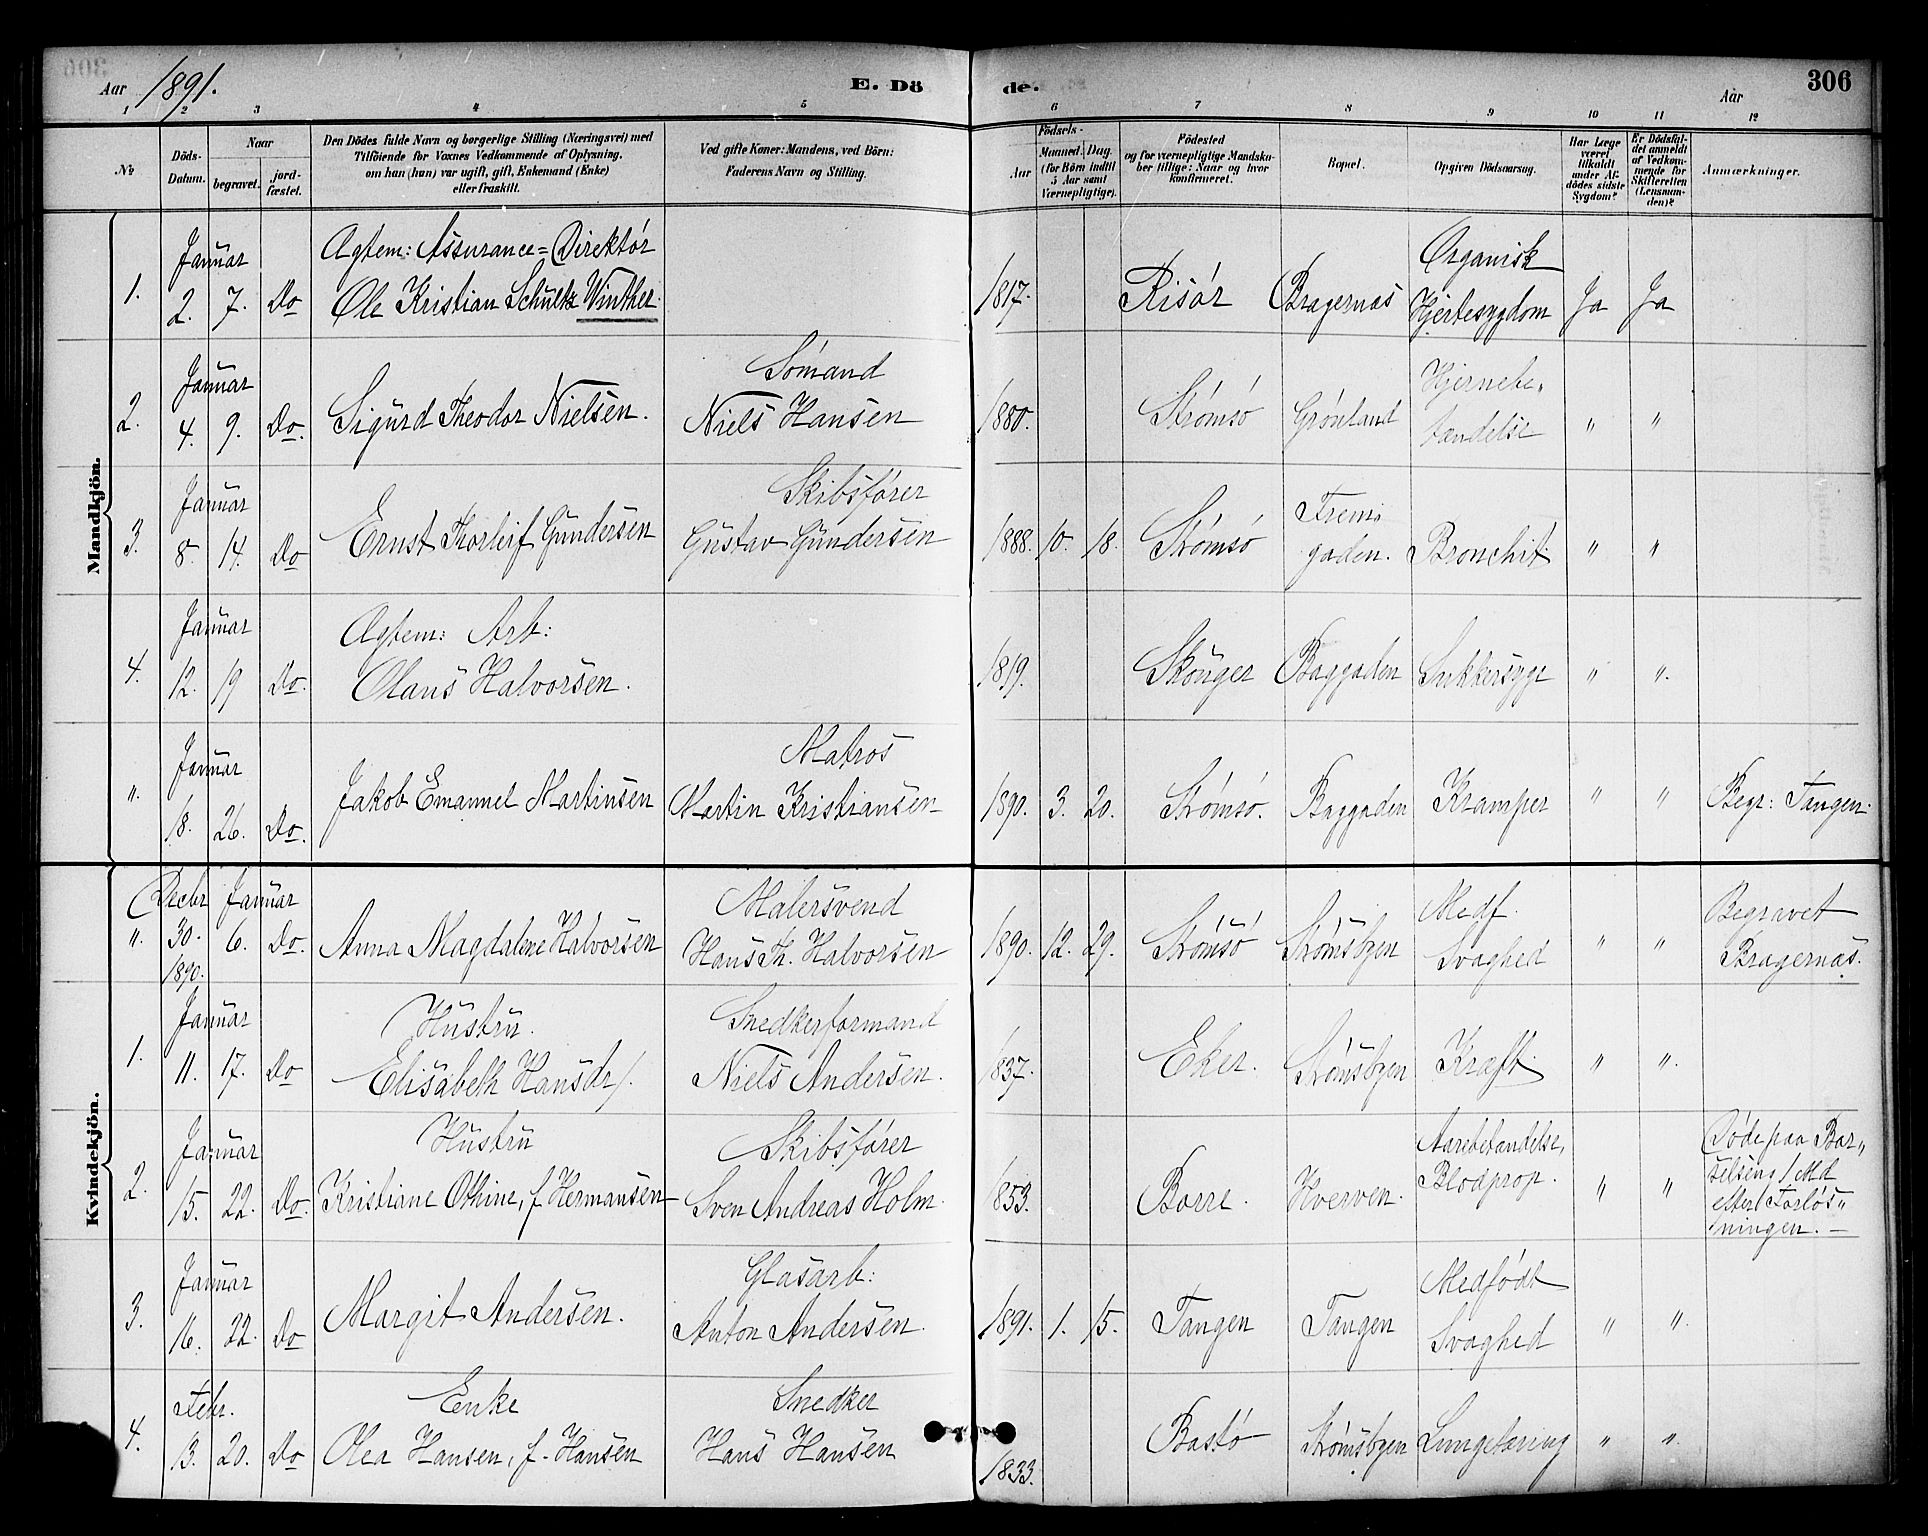 306
Aar 1891.
E. Dö
de.
306
Aar
1 2 3 4 5 6 7 8 9 10 11 12
№
Döds-Datum.
Naar
begravet.
jordfæstet.
Den Dödes fulde Navn og borgerlige Stilling (Næringsvei) med
Tilföiende for Voxnes Vedkommende af Oplysning,
om han (hun) var ugift, gift, Enkemand (Enke)
eller fraskilt.
Ved gifte Koner: Mandens, ved Börn:
Faderens Navn og Stilling.
Födsels-
Aar
Maaned. Dag.
(for Börn indtil
5 Aar samt
Værnepligtige).
Födested
og for værnepligtige Mandska-
ber tillige: Naar og hvor
konfirmeret.
Bopæl.
Opgiven Dödsaarsag.
Har Læge
været
tilkaldt
under Af-
dödes sidste
Sygdom?
Er Dödsfal-
det anmeldt
af Vedkom-
mende for
Skifteretten
(Lensman-
den)?
Anmærkninger.
Mandkjön.
Januar Agtem: Assurance=Direktör Organisk
1. 2. 7. Do Ole Kristian Schultz Winther. 1817. Risör Bragernæs Hjertesygdom Ja Ja
Januar Sömand Hjernebe-
2. 4. 9. Do. Sigurd Theodor Nielsen. Niels Hansen 1880. Strömsö Grönland tændelse " "
Januar Skibsförer Frem-
3. 8. 14. Do Ernst Thorleif Gundersen Gustav Gundersen 1888. 10. 18. Strömsö gaden. Bronchit. " "
Januar Agtem: Arb:
4. 12. 19 Do. Olaus Halvorsen. 1819. Skouger Baggaden Sukkersyge " "
Januar Matros
". 18. 26. Do. Jakob Emanuel Martinsen Martin Kristiansen 1890. 3. 20. Strömsö. Baggaden Kramper " " Begr: Tangen.
Kvindekjön.
Decbr Januar Malersvend Medf. Begravet
". 30. 6. Do. Anna Magdalene Halvorsen Hans Th. Halvorsen 1890. 12. 29. Strömsö Strömsbyen Svaghed " " Bragernæs.
1890.
Januar Hustru. Snedkerformand
1. 11. 17. Do Elisabeth Hansdr/. Niels Andersen. 1837. Eker. Strömsbyen Kræft. " "
Januar Hustru Skibsförer Aarebetændelse, Döde paa Bar-
2. 15. 22. Do. Kristiane Othine, f. Hermansen Sven Andreas Holm. 1853. Borre. Hverven. Blodprop. " " selseng 1 Md
efter Forlös-
ningen. —
Januar Glasarb: Medfödt
3. 16. 22. Do Margit Andersen. Anton Andersen. 1891. 1. 15. Tangen Tangen Svaghed " "
Febr. Enke Snedker
4. 13. 20. Do Olea Hansen, f. Hansen Hans Hansen 1833. Bastö Strömsbyen Lungetæring " "